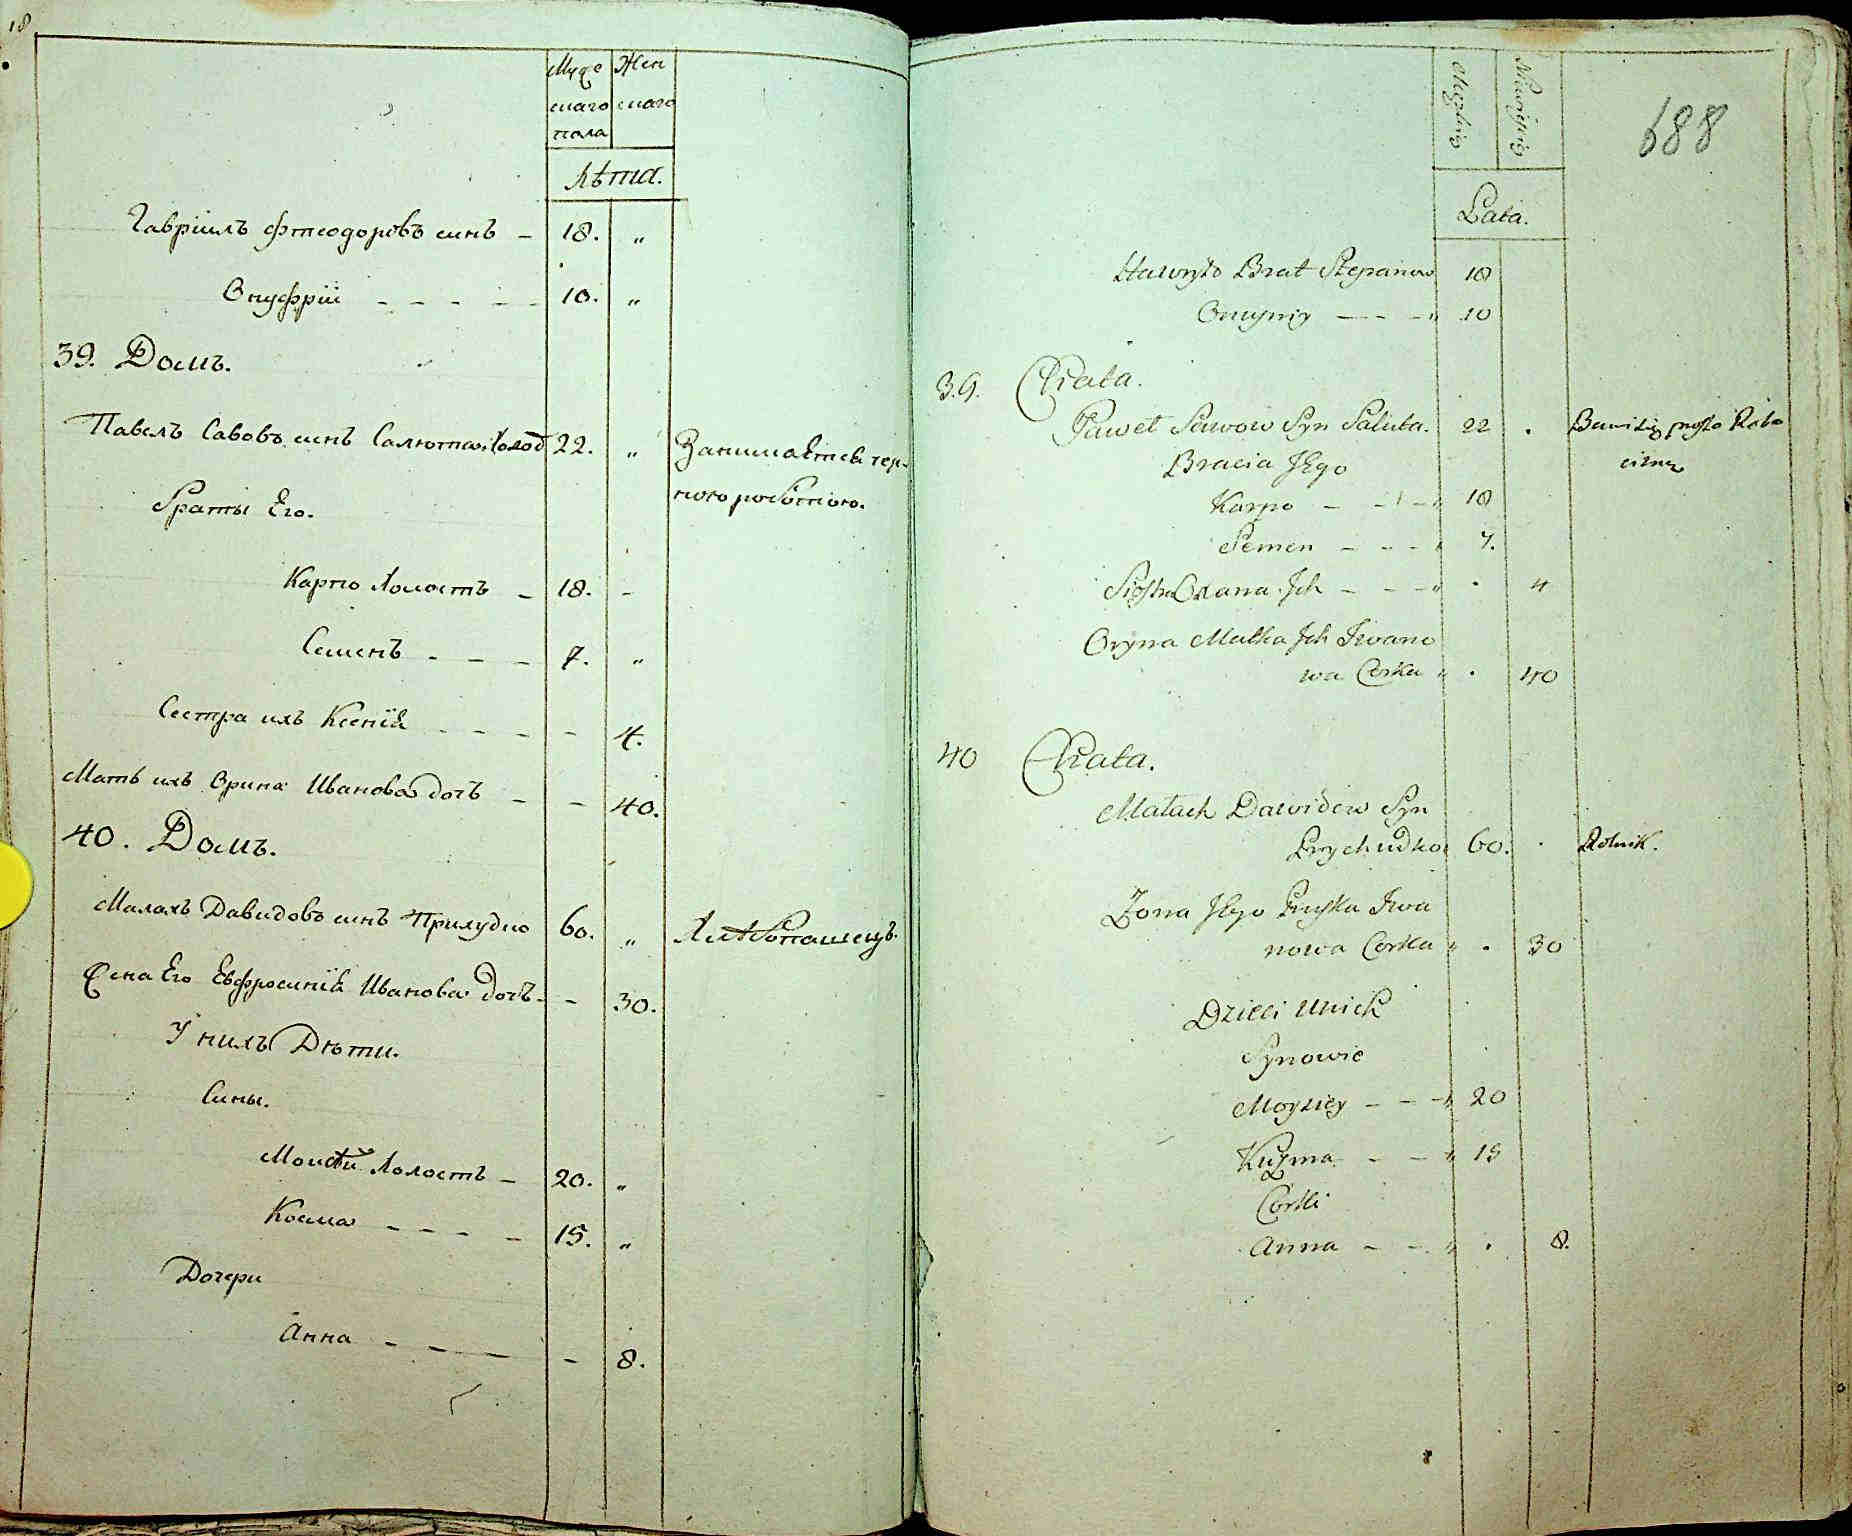 18
Муже Жен
скаго скаго
пола
Лѣта.
Гаврiилъ Фтеодоровъ синъ – 18. „
Онуфрiй – – – – – 10. „
39. Домъ.
Павелъ Савовъ синъ Салюта Холос 22. „ Занимается чер-
ною роботою.
Браты Его.
Карпо Холостъ – 18. –
Семенъ – – – 7. „
Сестра ихъ Ксенiя – – – – – 4.
Мать ихъ Орина Иванова дочъ – – 40.
40. Домъ.
Малахъ Давидовъ синъ Прихудко 60. „ Хлѣбопашецъ.
Жена Его Евфросинiя Иванова дочъ – – 30.
У нихъ Дѣти.
Сины.
Моисѣй Холостъ – 20. „
Косма – – – – 15. „
Дочери
Анна – – – – 8.
688
Męzkiey
Lata.
Hawryło Brat Stepanow 18
Onuyriy – – – „ 10
39. Chata.
Paweł Sawow Syn Saluta. 22 . Bawi się prosto Robo
cizną
Bracia Jego
Karpo – – – „ 18
Semen – – – „ 7.
Siostra Oxana Jch – – – „ . 4
Oryna Matka Jch Iwano
wa Corka „ . 40
40 Chata.
Małach Dawidow Syn
Prychudko 60. . Rolnik.
Żona Jego Pryśka Iwa
nowa Corka „ . 30
Dzieci Unich
Synowie
Moysiey – – – „ 20
Kuzma – – „ 15
Corki
Anna – – „ . 8.